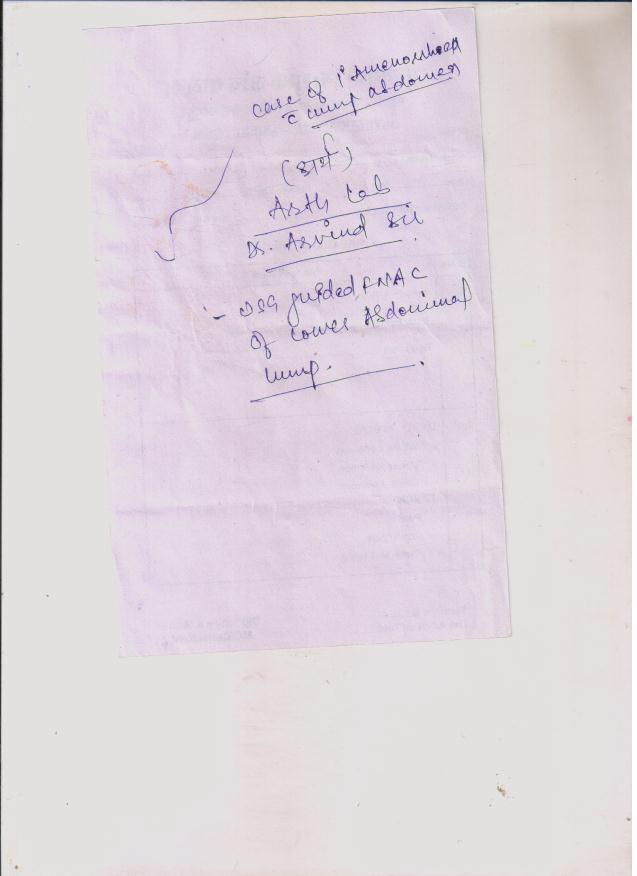 case of 1° Amenorrhoea
c̄ lump abdomen
(अर्थ)
Arth Lab
Dr. Arvind Sir
:- USG guided FNAC
of Lower Abdominal
lump.